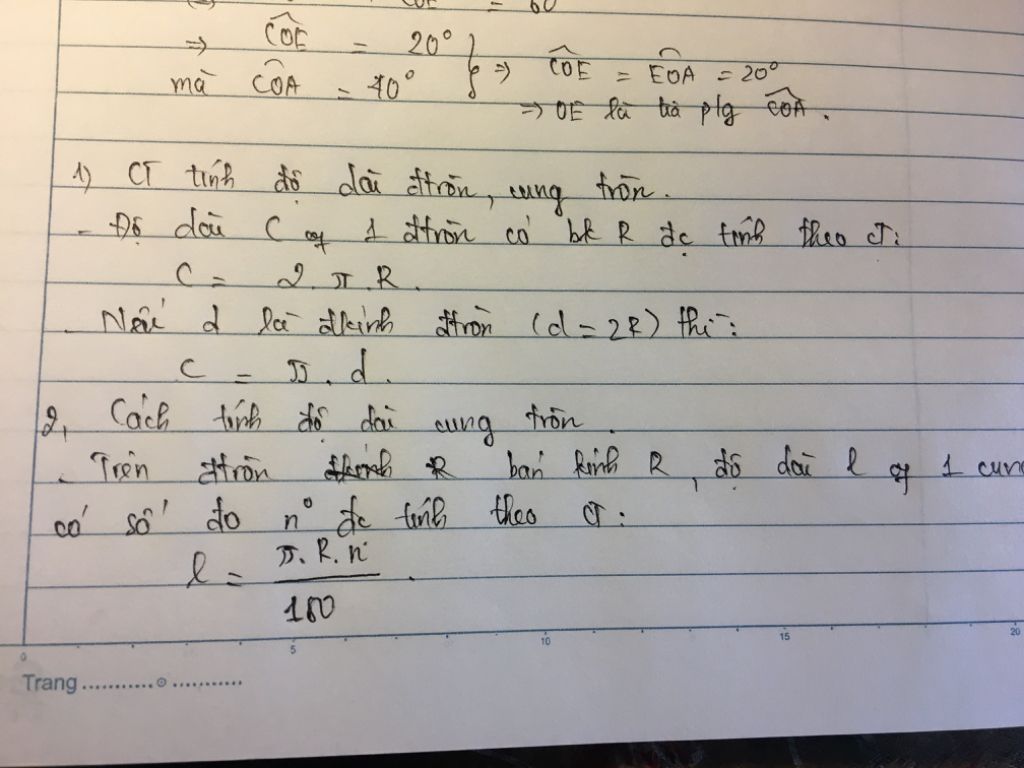 = 60
⇒ COE = 20°
mà COA = 40° } ⇒ COE = EOA = 20°
⇒ OE là tia p/g COA.
1) CT tính độ dài đtròn, cung tròn.
- Độ dài C of 1 đtròn có bk R đc tính theo CT:
C = 2.π.R.
- Nếu d là đkính đtròn (d = 2R) thì:
C = π.d.
2, Cách tính độ dài cung tròn.
- Trên đtròn bán kính R, độ dài l of 1 cung
có số đo n° đc tính theo CT:
l = π.R.n / 180.
0 5 10 15 20
Trang